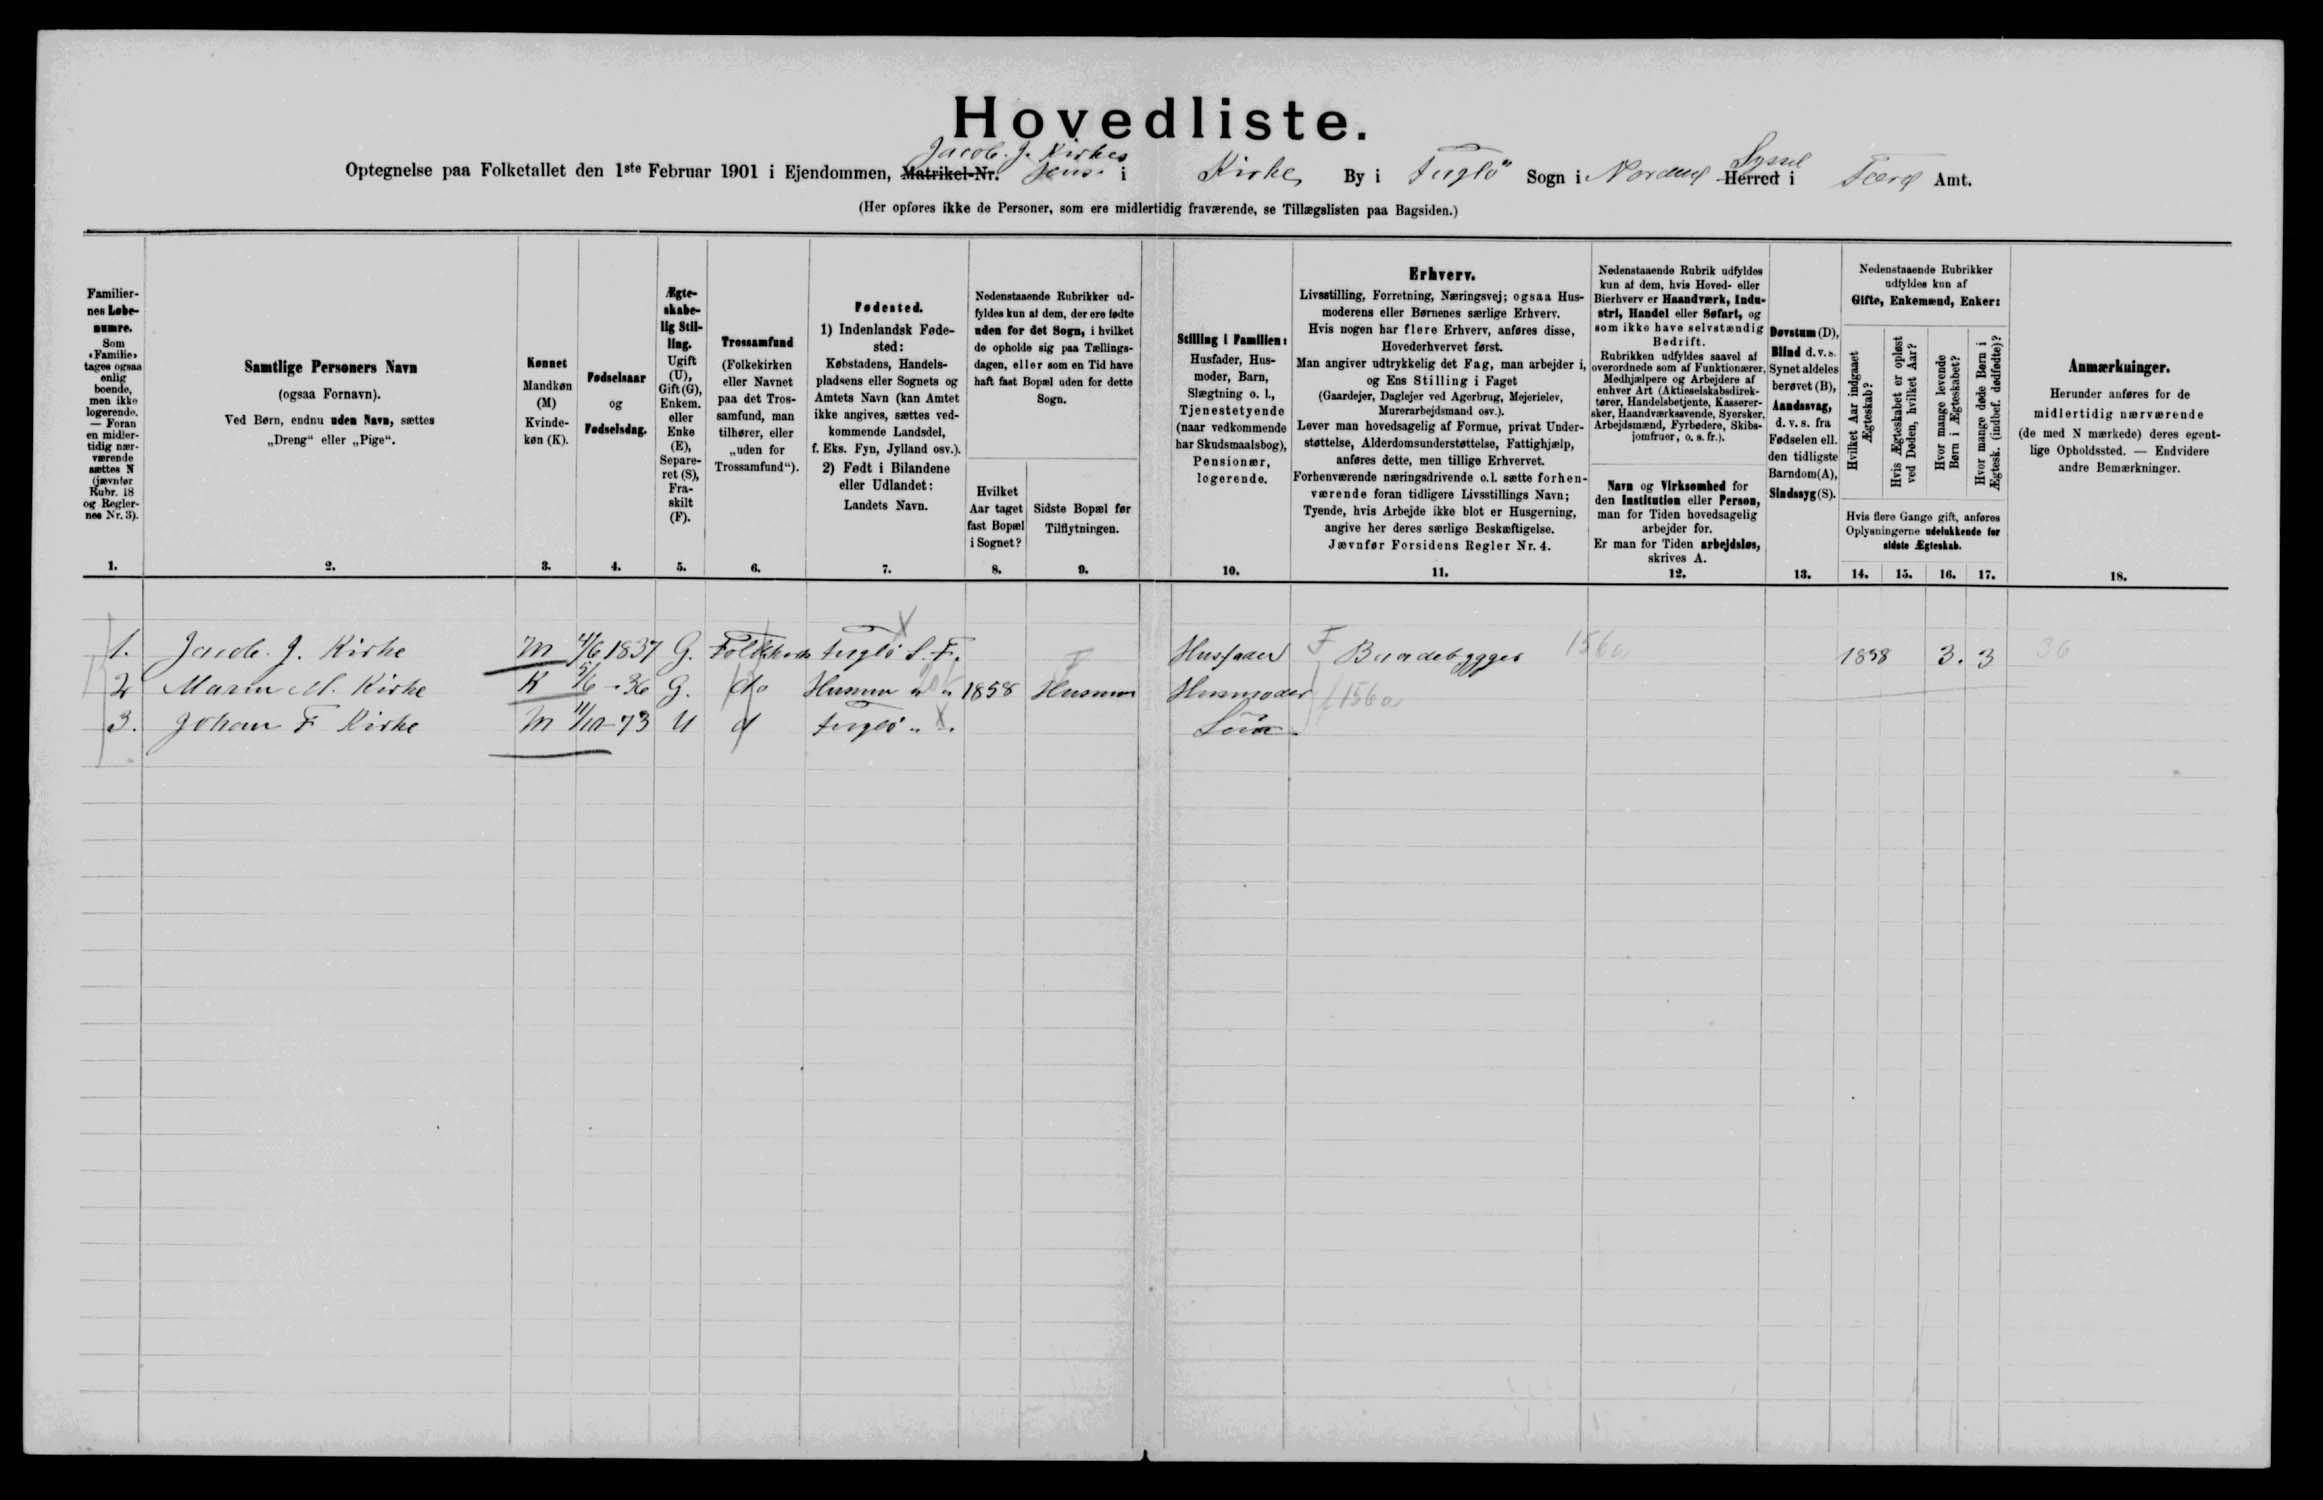 Hovedliste.
Jacob. J. Kirkes
Optegnelse paa Folketallet den 1ste Februar 1901 i Ejendommen, Matrikel-Nr. i Kirke By i Fuglö Sogn i Norderø Syssel Herred i Færø Amt.
(Her opføres ikke de Personer, som ere midlertidig fraværende, se Tillægslisten paa Bagsiden.)
Familier-
nes Løbe-
numre.
Som
«Familie»
tages ogsaa
enlig
boende,
men ikke
logerende.
— Foran
en midler-
tidig nær-
værende
sættes N
(jævnfør
Rubr. 18
og Regler-
nes Nr. 3).
1.
Samtlige Personers Navn
(ogsaa Fornavn).
Ved Børn, endnu uden Navn, sættes
„Dreng“ eller „Pige“.
2.
Kønnet
Mandkøn
(M)
Kvinde-
køn (K).
3.
Fødselsaar
og
Fødselsdag.
4.
Ægte-
skabe-
lig Stil-
ling.
Ugift
(U),
Gift (G),
Enkem.
eller
Enke
(E),
Separe-
ret (S),
Fra-
skilt
(F).
5.
Trossamfund
(Folkekirken
eller Navnet
paa det Tros-
samfund, man
tilhører, eller
„uden for
Trossamfund“).
6.
Fødested.
1) Indenlandsk Føde-
sted:
Købstadens, Handels-
pladsens eller Sognets og
Amtets Navn (kan Amtet
ikke angives, sættes ved-
kommende Landsdel,
f. Eks. Fyn, Jylland osv.).
2) Født i Bilandene
eller Udlandet:
Landets Navn.
7.
Nedenstaaende Rubrikker ud-
fyldes kun af dem, der ere fødte
uden for det Sogn, i hvilket
de opholde sig paa Tællings-
dagen, eller som en Tid have
haft fast Bopæl uden for dette
Sogn.
Hvilket
Aar taget
fast Bopæl
i Sognet?
8.
Sidste Bopæl før
Tilflytningen.
9.
Stilling i Familien:
Husfader, Hus-
moder, Barn,
Slægtning o. l.,
Tjenestetyende
(naar vedkommende
har Skudsmaalsbog),
Pensionær,
logerende.
10.
Erhverv.
Livsstilling, Forretning, Næringsvej; ogsaa Hus-
moderens eller Børnenes særlige Erhverv.
Hvis nogen har flere Erhverv, anføres disse,
Hovederhvervet først.
Man angiver udtrykkelig det Fag, man arbejder i,
og Ens Stilling i Faget
(Gaardejer, Daglejer ved Agerbrug, Mejerielev,
Murerarbejdsmand osv.).
Lever man hovedsagelig af Formue, privat Under-
støttelse, Alderdomsunderstøttelse, Fattighjælp,
anføres dette, men tillige Erhvervet.
Forhenværende næringsdrivende o.l. sætte forhen-
værende foran tidligere Livsstillings Navn;
Tyende, hvis Arbejde ikke blot er Husgerning,
angive her deres særlige Beskæftigelse.
Jævnfør Forsidens Regler Nr. 4.
11.
Nedenstaaende Rubrik udfyldes
kun af dem, hvis Hoved- eller
Bierhverv er Haandværk, Indu-
stri, Handel eller Søfart, og
som ikke have selvstændig
Bedrift.
Rubrikken udfyldes saavel af
overordnede som af Funktionærer,
Medhjælpere og Arbejdere af
enhver Art (Aktieselskabsdirek-
tører, Handelsbetjente, Kasserer-
sker, Haandværkssvende, Syersker,
Arbejdsmænd, Fyrbødere, Skibs-
jomfruer, o. s. fr.).
Navn og Virksomhed for
den Institution eller Person,
man for Tiden hovedsagelig
arbejder for.
Er man for Tiden arbejdsløs,
skrives A.
12.
Døvstum (D),
Blind d. v. s.
Synet aldeles
berøvet (B),
Aandssvag,
d. v. s. fra
Fødselen ell.
den tidligste
Barndom (A),
Sindssyg (S).
13.
Nedenstaaende Rubrikker
udfyldes kun af
Gifte, Enkemænd, Enker:
Hvilket Aar indgaaet
Ægteskab?
Hvis Ægteskabet er opløst
ved Døden, hvilket Aar?
Hvor mange levende
Børn i Ægteskabet?
Hvor mange døde Børn i
Ægtesk. (indbef. dødfødte)?
Hvis flere Gange gift, anføres
Oplysningerne udelukkende for
sidste Ægteskab.
14. 15. 16. 17.
Anmærkninger.
Herunder anføres for de
midlertidig nærværende
(de med N mærkede) deres egent-
lige Opholdssted. — Endvidere
andre Bemærkninger.
18.
1. Jacob. J. Kirke M 4/6 1837 G. Fuglö S. F. Husfader F Baadebygger 156a 1858 3. 3 36
2 Marin M. Kirke K 5/6 - 36 G. do Husum " " 1858 Husum Husmoder 156a
3. Johan F Kirke M 11/10-73 U d Fuglö " " Søn